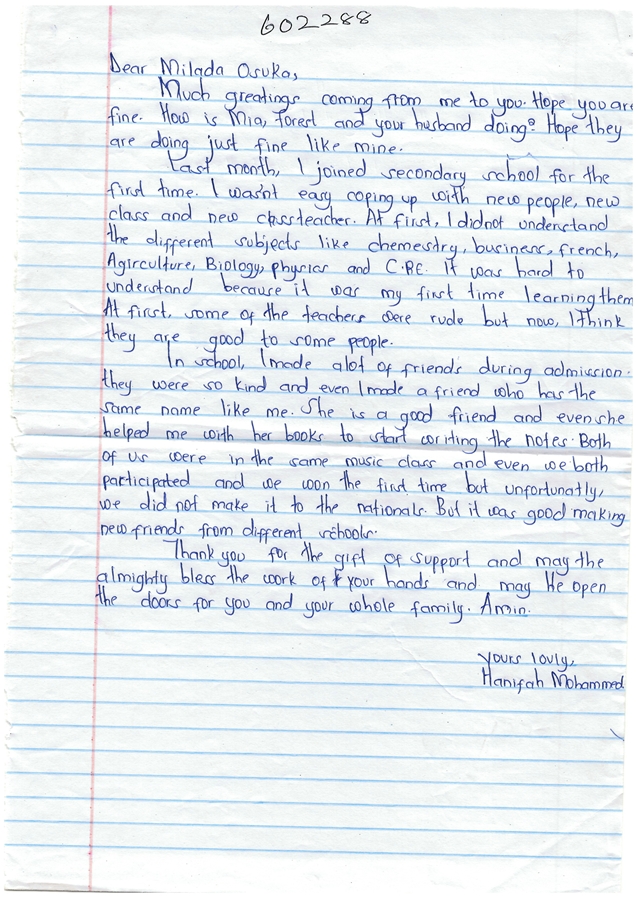 602288
Dear Milada Osuka,
Much greatings coming from me to you. Hope you are
fine. How is Mia, Forest and your husband doing? Hope they
are doing just fine like mine.
Last month, I joined secondary school for the
first time. I wasnt easy coping up with new people, new
class and new classteacher. At first, I didnot understand
the different subjects like chemestry, business, french,
Agirculture, Biology, physics and C.RE. it was hard to
understand because it was my first time learning them
At first, some of the teachers were rude but now, I think
they are good to some people.
In school, I made alot of friends during admission.
they were so kind and even I made a friend who has the
same name like me. She is a good friend and even she
helped me with her books to start writing the notes. Both
of us were in the same music class and even we both
participated and we won the first time but unfortunatly,
we did not make it to the nationals. But it was good making
new friends from different schools.
Thank you for the gift of support and may the
almighty bless the work of your hands and may He open
the doors for you and your whole family. Amin.
yours lovly,
Hanifah Mohammed